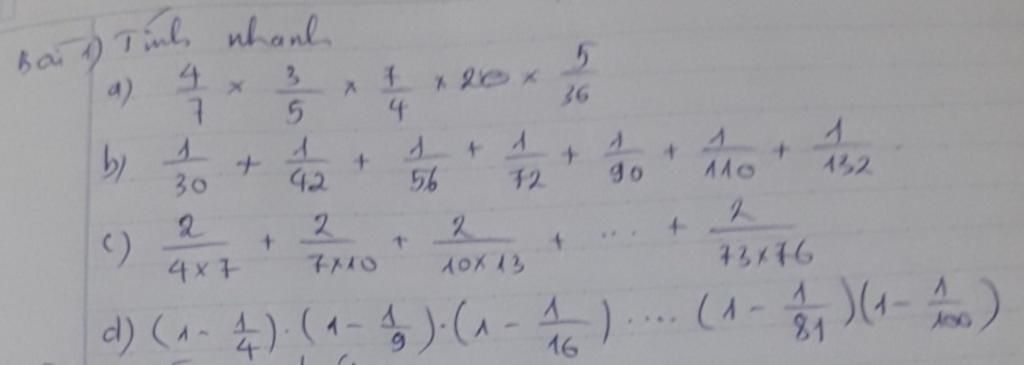 Bài 1) Tính nhanh
a) 4/7 × 3/5 × 7/4 × 20 × 5/36
b) 1/30 + 1/42 + 1/56 + 1/72 + 1/90 + 1/110 + 1/132
c) 2/4×7 + 2/7×10 + 2/10×13 + ... + 2/73×76
d) (1 - 1/4) . (1 - 1/9) . (1 - 1/16) .... (1 - 1/81)(1 - 1/100)